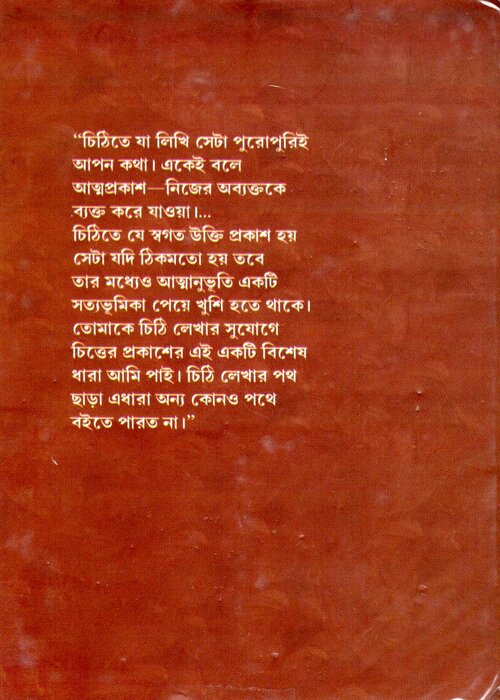 “চিঠিতে যা লিখি সেটা পুরোপুরিই
আপন কথা। একেই বলে
আত্মপ্রকাশ—নিজের অব্যক্তকে
ব্যক্ত করে যাওয়া।...
চিঠিতে যে স্বগত উক্তি প্রকাশ হয়
সেটা যদি ঠিকমতো হয় তবে
তার মধ্যেও আত্মানুভূতি একটি
সত্যভূমিকা পেয়ে খুশি হতে থাকে।
তোমাকে চিঠি লেখার সুযোগে
চিত্তের প্রকাশের এই একটি বিশেষ
ধারা আমি পাই। চিঠি লেখার পথ
ছাড়া এধারা অন্য কোনও পথে
বইতে পারত না।”